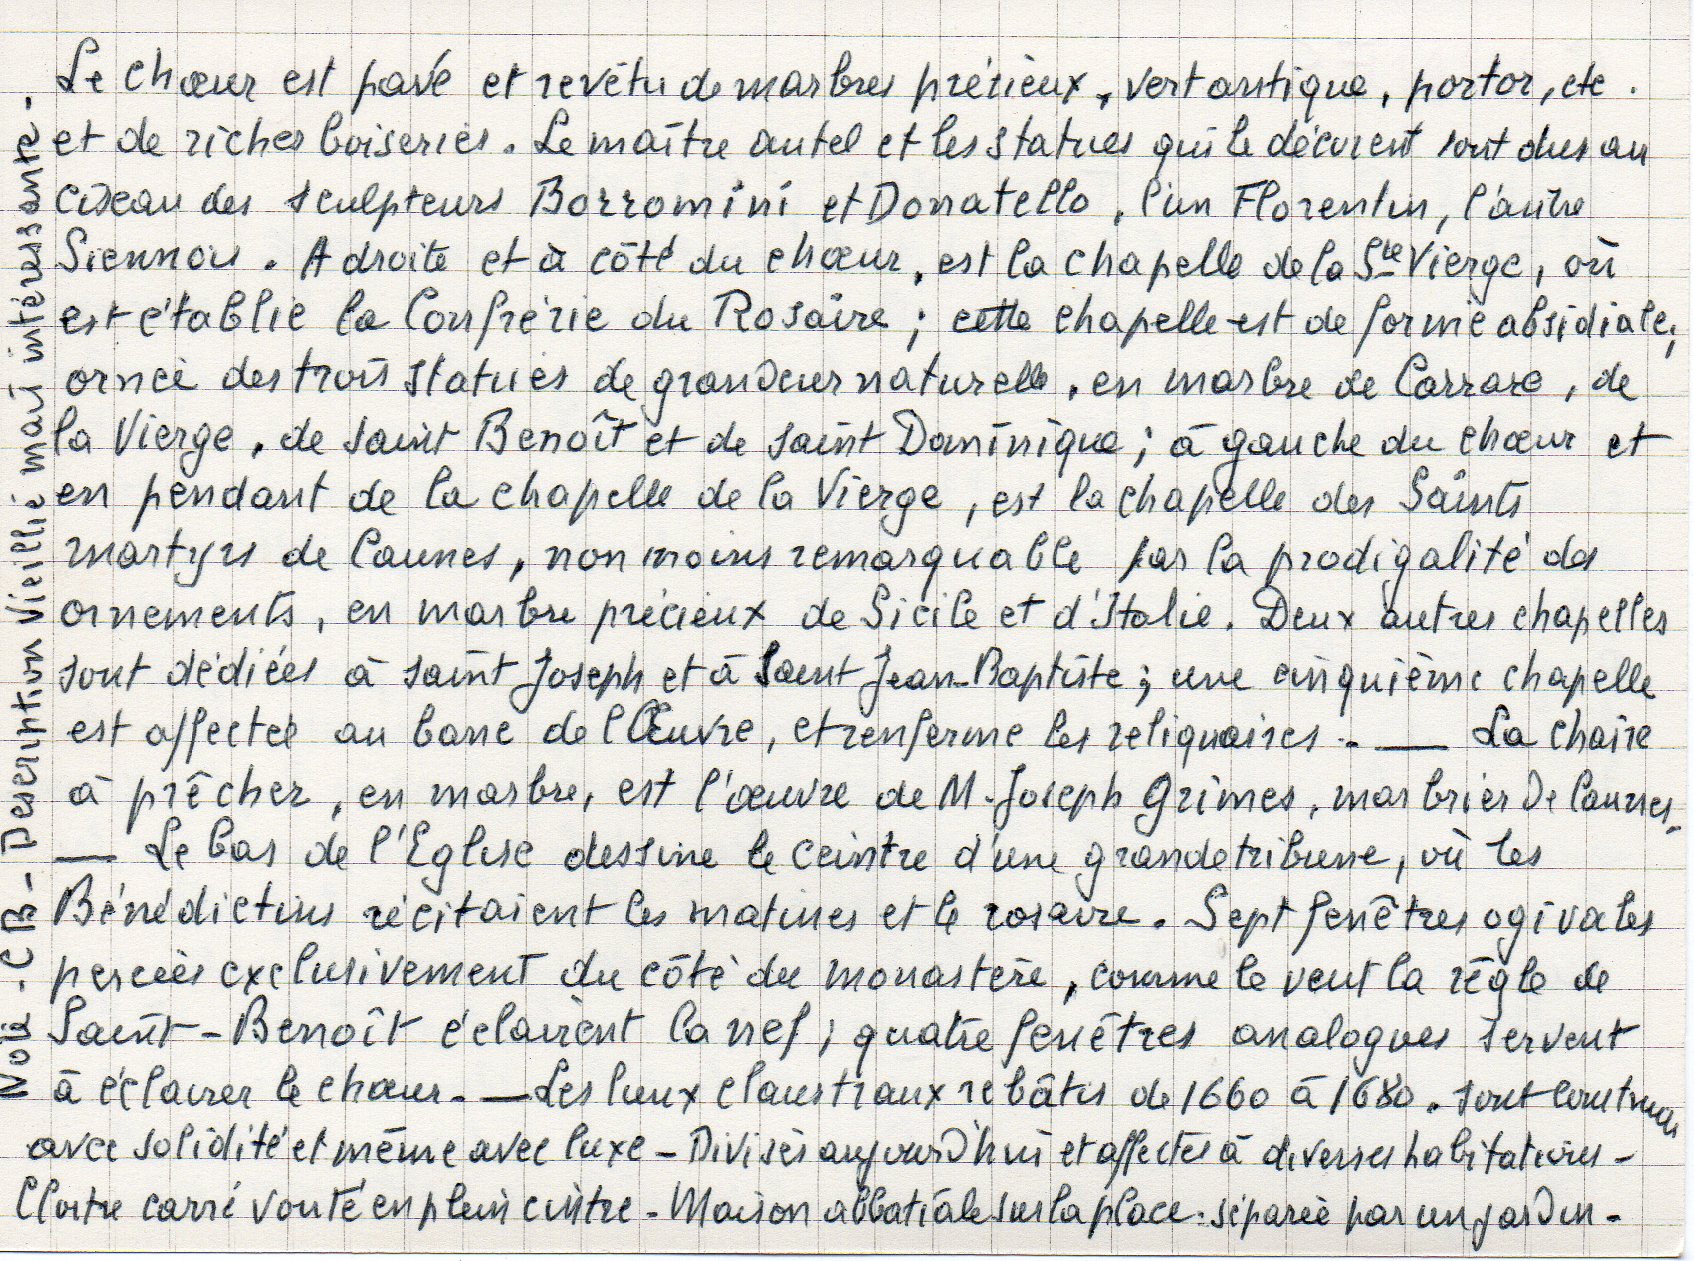 Le chœur est pavé et revêtu de marbres précieux, vert antique, portor, etc.
et de riches boiseries. Le maître autel et les statues qui le décorent sont dus au
ciseau des sculpteurs Borromini et Donatello, l'un Florentin, l'autre
Siennois. A droite et à côté du chœur, est la chapelle de la Ste Vierge, où
est établie la Confrérie du Rosaire ; cette chapelle est de forme absidiale,
ornée des trois statues de grandeur naturelle, en marbre de Carrare, de
la Vierge, de saint Benoît et de saint Dominique ; à gauche du chœur et
en pendant de la chapelle de la Vierge, est la chapelle des Saints
martyrs de Caunes, non moins remarquable par la prodigalité des
ornements, en marbre précieux de Sicile et d'Italie. Deux autres chapelles
sont dédiées à saint Joseph et à Saint Jean-Baptiste ; une cinquième chapelle
est affectée au banc de l'Œuvre, et renferme les reliquaires. — La chaire
à prêcher, en marbre, est l'œuvre de M. Joseph Grimes, marbrier de Caunes.
— Le bas de l'Eglise dessine le ceintre d'une grande tribune, où les
Bénédictins récitaient les matines et le rosaire. Sept fenêtres ogivales
percées exclusivement du côté du monastère, comme le veut la règle de
Saint-Benoît éclairent la nef ; quatre fenêtres analogues servent
à éclairer le chœur. — Les lieux claustraux rebâtis de 1660 à 1680. sont construits
avec solidité et même avec luxe - Divisés aujourd'hui et affectés à diverses habitations -
Cloître carré voûté en plein cintre - Maison abbatiale sur la place. séparée par un jardin -
Note. CB - Description vieillie mais intéressante.